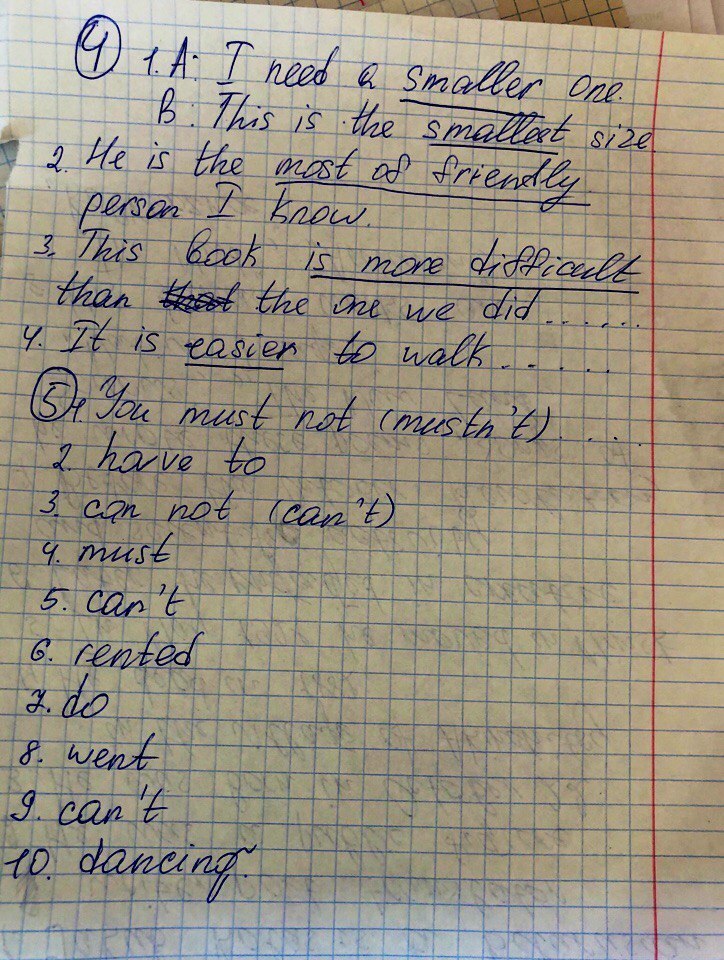 4 1. A: I need a smaller one.
B: This is the smallest size
2. He is the most of friendly
person I know.
3. This book is more difficult
than that the one we did ......
4. It is easier to walk......
5 1. You must not (mustn't) ....
2. have to
3. can not (can't)
4. must
5. can't
6. rented
7. do
8. went
9. can't
10. dancing.